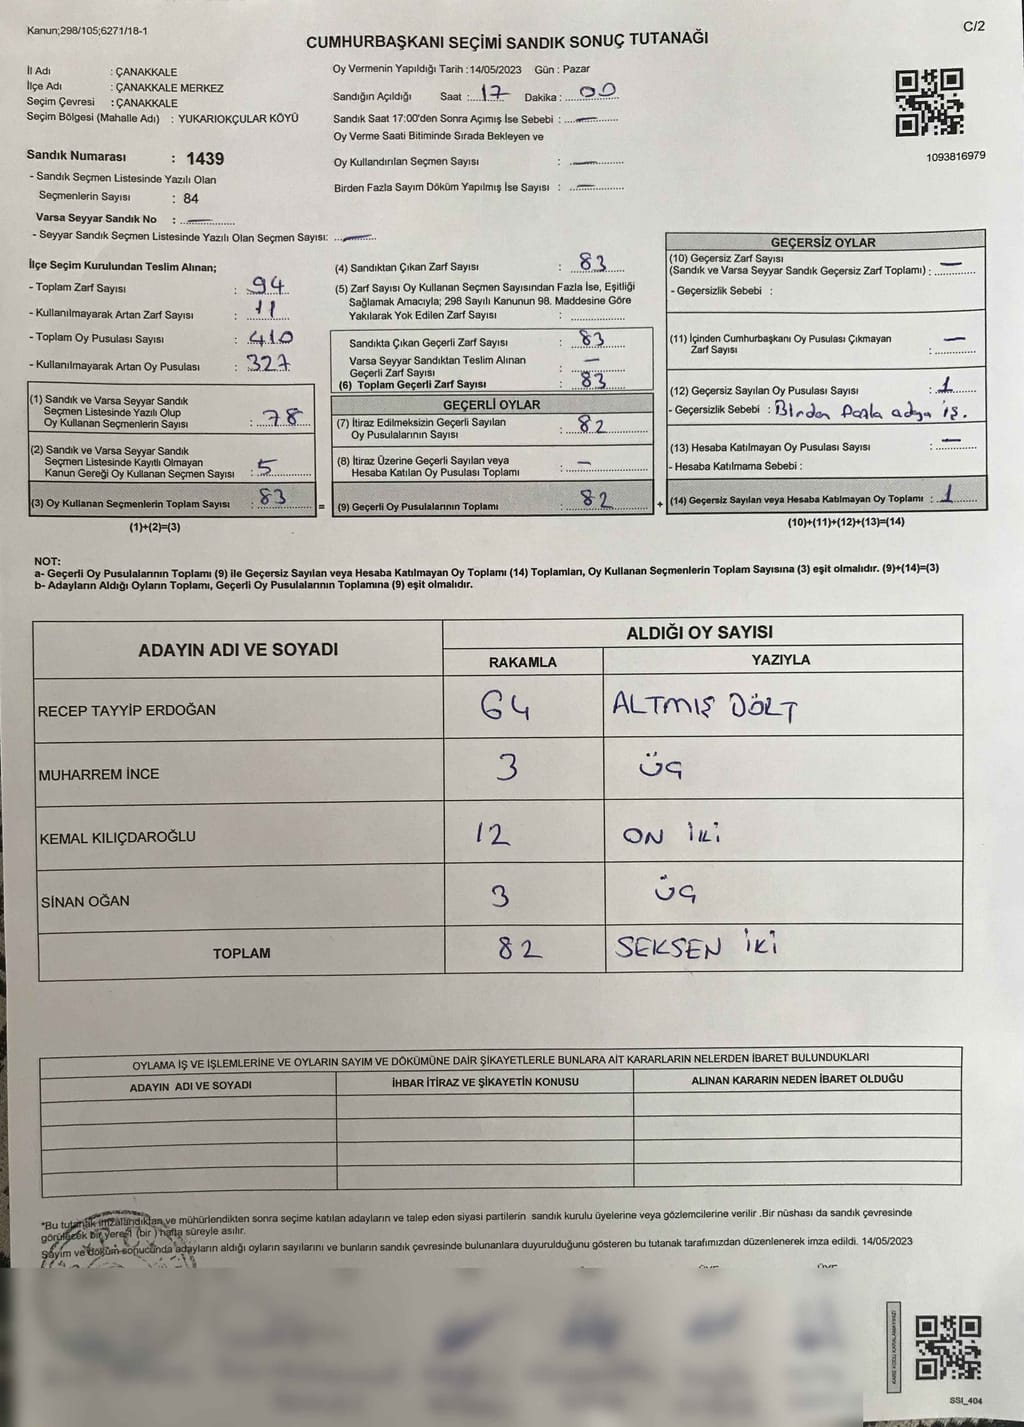 Kanun;298/105;6271/18-1
C/2
CUMHURBAŞKANI SEÇİMİ SANDIK SONUÇ TUTANAĞI
İl Adı : ÇANAKKALE
İlçe Adı : ÇANAKKALE MERKEZ
Seçim Çevresi : ÇANAKKALE
Seçim Bölgesi (Mahalle Adı) : YUKARIOKÇULAR KÖYÜ
Sandık Numarası : 1439
- Sandık Seçmen Listesinde Yazılı Olan
Seçmenlerin Sayısı : 84
Varsa Seyyar Sandık No : —
- Seyyar Sandık Seçmen Listesinde Yazılı Olan Seçmen Sayısı: —
Oy Vermenin Yapıldığı Tarih :14/05/2023 Gün : Pazar
Sandığın Açıldığı Saat : 17 Dakika : 00
Sandık Saat 17:00'den Sonra Açımış İse Sebebi : —
Oy Verme Saati Bitiminde Sırada Bekleyen ve
Oy Kullandırılan Seçmen Sayısı : —
Birden Fazla Sayım Döküm Yapılmış İse Sayısı : —
1093816979
İlçe Seçim Kurulundan Teslim Alınan;
- Toplam Zarf Sayısı : 94
- Kullanılmayarak Artan Zarf Sayısı : 11
- Toplam Oy Pusulası Sayısı : 410
- Kullanılmayarak Artan Oy Pusulası : 327
(1) Sandık ve Varsa Seyyar Sandık
Seçmen Listesinde Yazılı Olup
Oy Kullanan Seçmenlerin Sayısı : 78
(2) Sandık ve Varsa Seyyar Sandık
Seçmen Listesinde Kayıtlı Olmayan
Kanun Gereği Oy Kullanan Seçmen Sayısı : 5
(3) Oy Kullanan Seçmenlerin Toplam Sayısı : 83
(1)+(2)=(3)
(4) Sandıktan Çıkan Zarf Sayısı : 83
(5) Zarf Sayısı Oy Kullanan Seçmen Sayısından Fazla İse, Eşitliği
Sağlamak Amacıyla; 298 Sayılı Kanunun 98. Maddesine Göre
Yakılarak Yok Edilen Zarf Sayısı :
Sandıkta Çıkan Geçerli Zarf Sayısı : 83
Varsa Seyyar Sandıktan Teslim Alınan
Geçerli Zarf Sayısı : —
(6) Toplam Geçerli Zarf Sayısı : 83
GEÇERLİ OYLAR
(7) İtiraz Edilmeksizin Geçerli Sayılan
Oy Pusulalarının Sayısı : 82
(8) İtiraz Üzerine Geçerli Sayılan veya
Hesaba Katılan Oy Pusulası Toplamı : —
= (9) Geçerli Oy Pusulalarının Toplamı : 82 +
GEÇERSİZ OYLAR
(10) Geçersiz Zarf Sayısı
(Sandık ve Varsa Seyyar Sandık Geçersiz Zarf Toplamı) : —
- Geçersizlik Sebebi :
(11) İçinden Cumhurbaşkanı Oy Pusulası Çıkmayan
Zarf Sayısı : —
(12) Geçersiz Sayılan Oy Pusulası Sayısı : 1
- Geçersizlik Sebebi : Birden fazla adaya iş.
(13) Hesaba Katılmayan Oy Pusulası Sayısı : —
- Hesaba Katılmama Sebebi :
(14) Geçersiz Sayılan veya Hesaba Katılmayan Oy Toplamı : 1
(10)+(11)+(12)+(13)=(14)
NOT:
a- Geçerli Oy Pusulalarının Toplamı (9) ile Geçersiz Sayılan veya Hesaba Katılmayan Oy Toplamı (14) Toplamları, Oy Kullanan Seçmenlerin Toplam Sayısına (3) eşit olmalıdır. (9)+(14)=(3)
b- Adayların Aldığı Oyların Toplamı, Geçerli Oy Pusulalarının Toplamına (9) eşit olmalıdır.
ADAYIN ADI VE SOYADI
ALDIĞI OY SAYISI
RAKAMLA YAZIYLA
RECEP TAYYİP ERDOĞAN 64 ALTMIŞ DÖRT
MUHARREM İNCE 3 ÜÇ
KEMAL KILIÇDAROĞLU 12 ON İKİ
SİNAN OĞAN 3 ÜÇ
TOPLAM 82 SEKSEN İKİ
OYLAMA İŞ VE İŞLEMLERİNE VE OYLARIN SAYIM VE DÖKÜMÜNE DAİR ŞİKAYETLERLE BUNLARA AİT KARARLARIN NELERDEN İBARET BULUNDUKLARI
ADAYIN ADI VE SOYADI İHBAR İTİRAZ VE ŞİKAYETİN KONUSU ALINAN KARARIN NEDEN İBARET OLDUĞU
*Bu tutanak imzalandıktan ve mühürlendikten sonra seçime katılan adayların ve talep eden siyasi partilerin sandık kurulu üyelerine veya gözlemcilerine verilir .Bir nüshası da sandık çevresinde
görülecek bir yere 1 (bir ) hafta süreyle asılır.
Sayım ve döküm sonucunda adayların aldığı oyların sayılarını ve bunların sandık çevresinde bulunanlara duyurulduğunu gösteren bu tutanak tarafımızdan düzenlenerek imza edildi. 14/05/2023
SSI_404